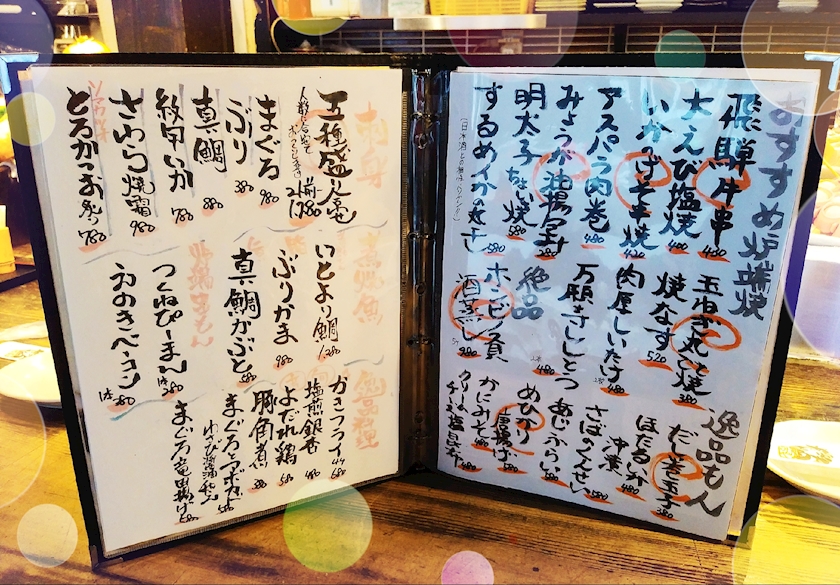 おすすめ炉端焼
飛騨牛串 480
大えび塩焼 400
いかのずぽ焼 420
アスパラ肉巻 480
みょうが油揚包み 580
明太子ちょい焼 580
するめいかの丸干し
玉ねぎ丸ごと焼 380
焼なす 520
肉厚しいたけ 480
万願寺ししとう 480
絶品
ホンビノス貝
酒蒸し 980
逸品もん
だし巻玉子 380
ほたるいか
沖漬 480
さばのくんせい 580
あじふらい 580
めひかり
唐揚げ 580
かにみそ 480
クリームチーズ塩昆布 480
刺身
五種盛 2人前 1,780
まぐろ 980
ぶり 380
真鯛 880
紋甲いか 780
さわら焼霜 980
とろかつお 780
煮炊魚
いとより鯛 1,280
ぶりかま 980
真鯛かぶと 580
つくねぴーまん 1本 280
えのきベーコン 1本 280
かきフライ 680
塩煎銀杏 480
よだれ鶏 580
豚角煮 380
まぐろとアボカド
わさび醤油和え 580
まぐろ竜田揚げ 580